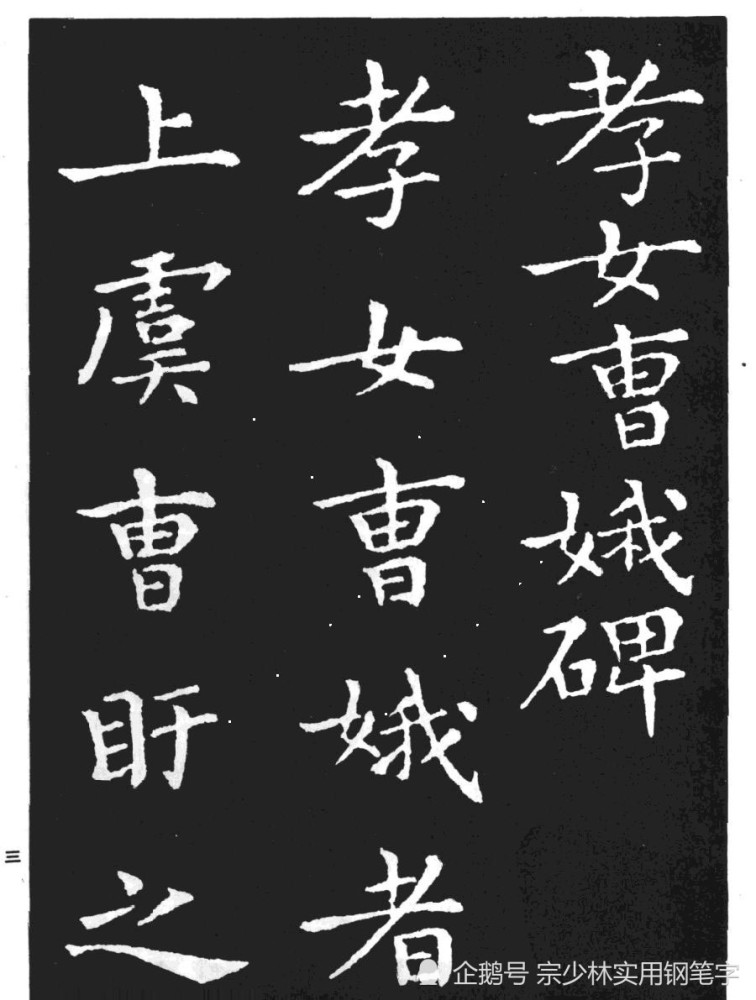 孝女曹娥碑
孝女曹娥者
上虞曹盱之
三
企鹅号 宗少林实用钢笔字